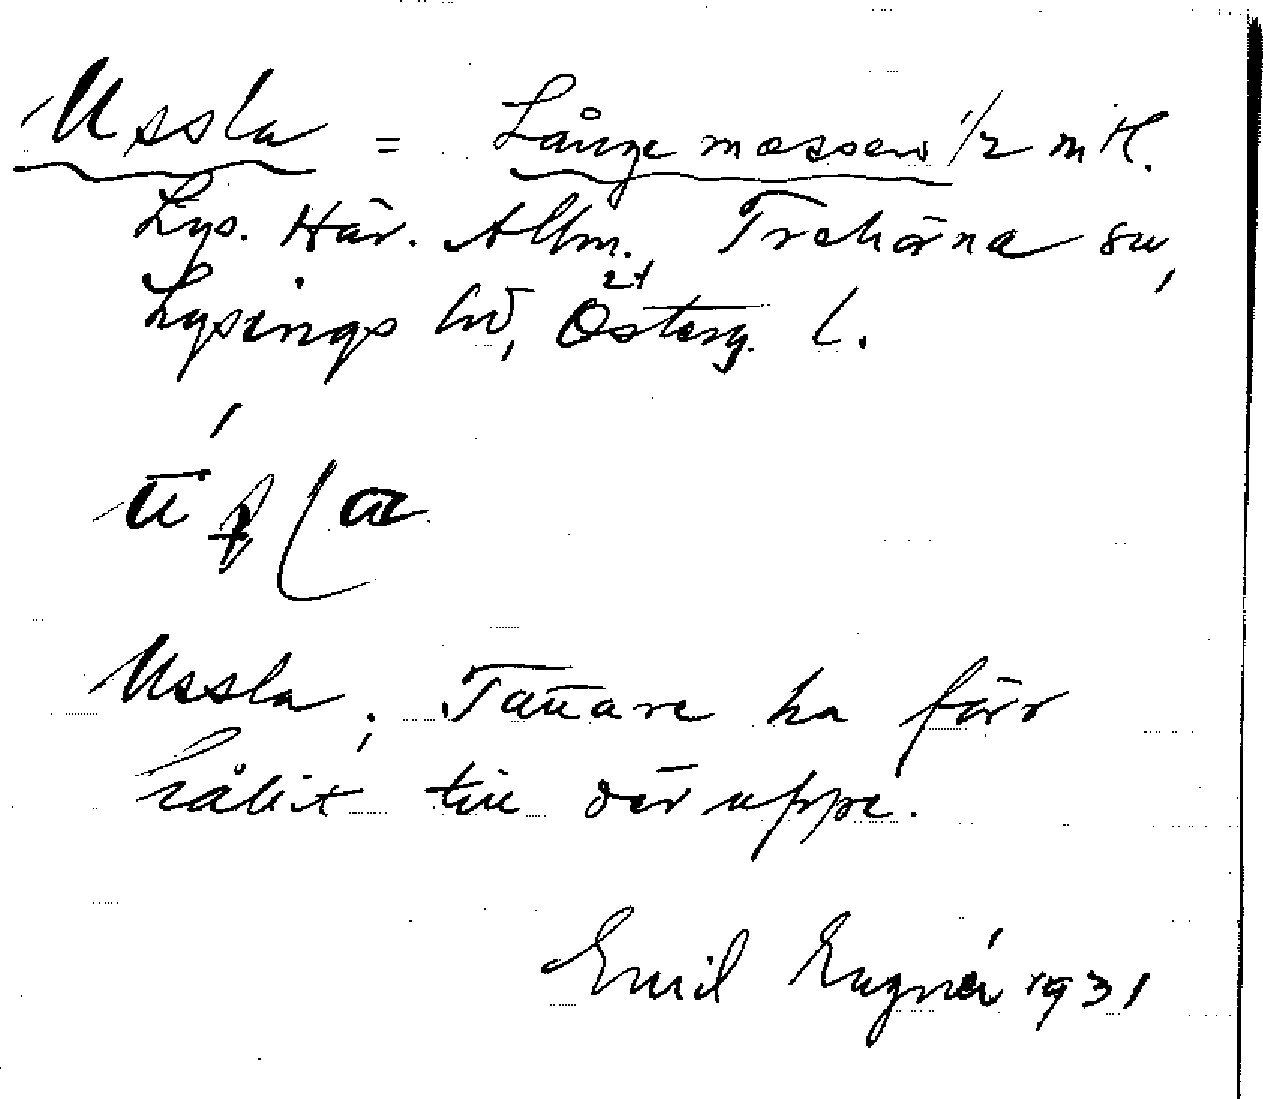 Ussla = Långe mossen 1/2 mtl.
Lys. Här. Allm., Trehörna sn,
Lysings hd, Österg. l.
Ussla; Tattare ha förr
hållit till där uppe.
Emil Engnér 1931